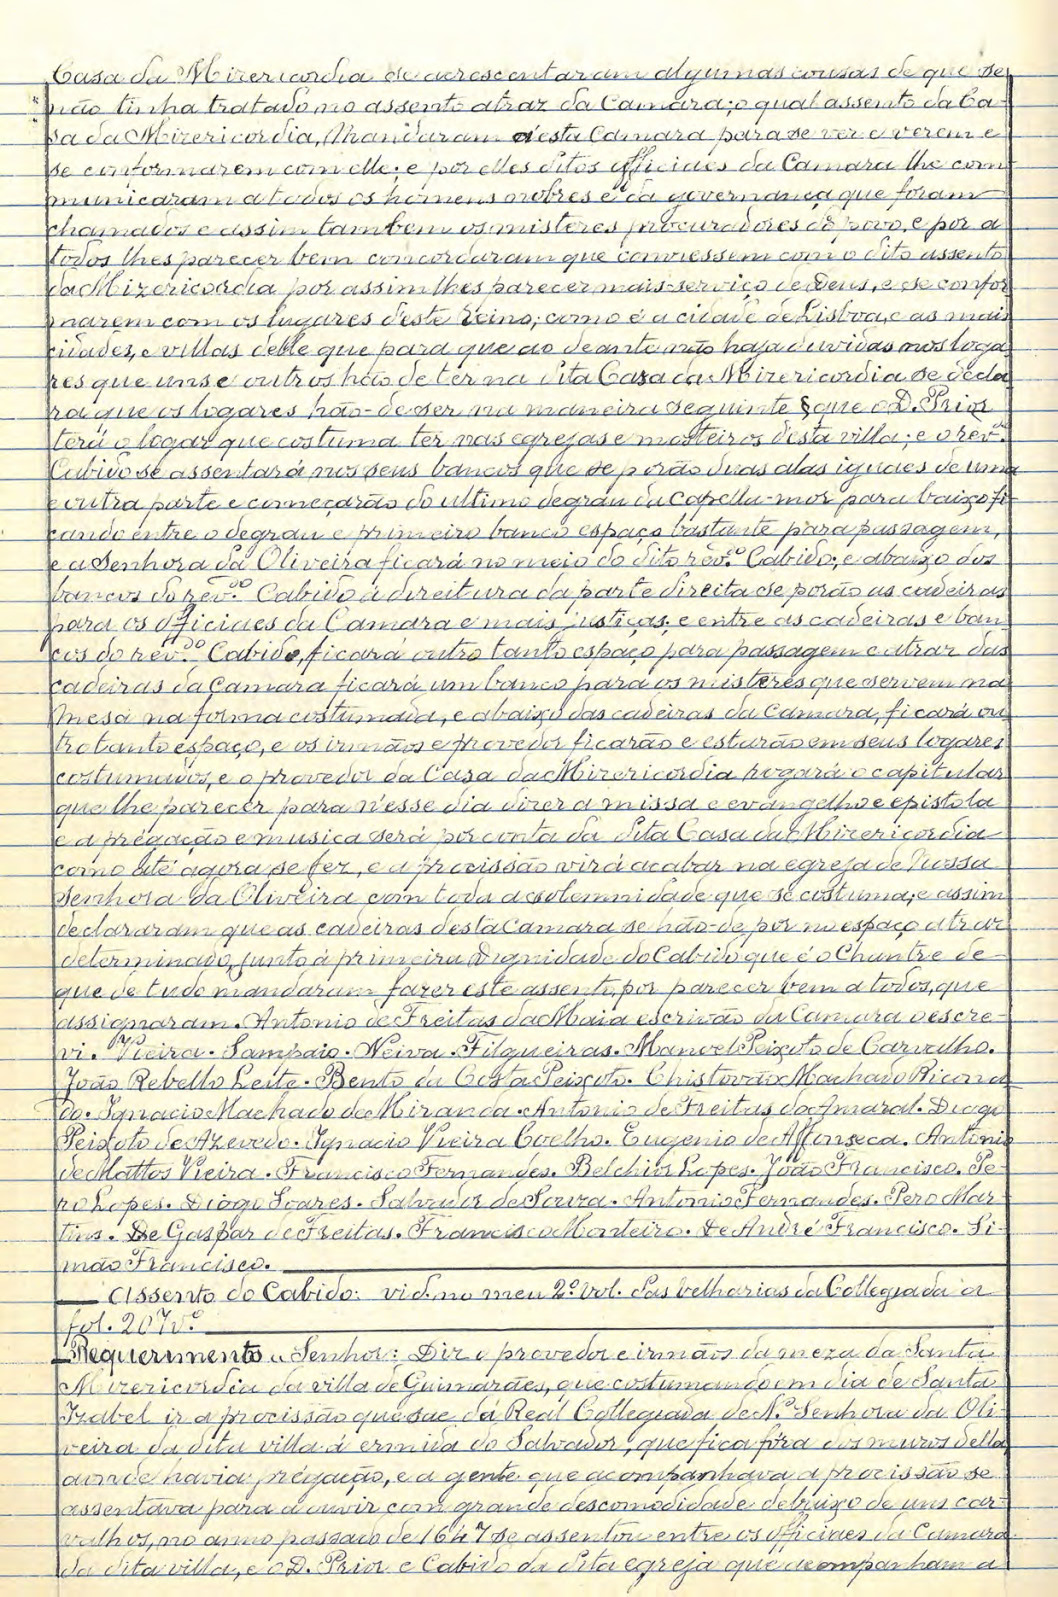 Casa da Misericordia se acrescentaram algumas cousas de que se
não tinha tratado no assento atraz da Camara; o qual assento da Ca-
sa da Misericordia, mandaram a esta Camara para se ver e verem e
se conformarem com elle; e por elles ditos officiaes da Camara lhe com-
municaram a todos os homens nobres e da governança que foram
chamados e assim tambem os misteres procuradores do povo, e por a
todos lhes parecer bem concordaram que conviessem com o dito assento
da Mizericordia por assim lhes parecer mais serviço de Deus, e se confor
marem com os lugares deste Reino; como é a cidade de Lisboa, e as mais
cidades, e villas delle que para que ao deante não haja duvidas nos loga-
res que uns e outros hão de ter na dita Casa da Misericordia se decla
ra que os logares hão-de ser na maneira seguinte § que o D. Prior
terá o logar que costuma ter nas egrejas e mosteiros desta villa; e o rev.do
Cabido se assentará nos seus bancos que se porão duas alas iguaes de uma
e outra parte e começarão do ultimo degrau da Capella-mor para baixo fi-
cando entre o degrau e primeiro banco espaço bastante para passagem,
e a Senhora da Oliveira ficará no meio do dito rev.do Cabido; e abaixo dos
bancos do rev.do Cabido á direitura da parte direita se porão as cadeiras
para os officiaes da Camara e mais justiças, e entre as cadeiras e ban-
cos do rev.do Cabido, ficará outro tanto espaço para passagem e atraz das
cadeiras da Camara ficará um banco para os misteres que servem na
Mesa na forma costumada, e abaixo das cadeiras da Camara, ficará ou
tro tanto espaço, e os irmãos e provedor ficarão e estarão em seus logares
costumados, e o provedor da Casa da Misericordia rogará o capitular
que lhe parecer para n'esse dia dizer a missa e evangelho e epistola
e a prégação e musica será por conta da dita Casa da Misericordia
como até agora se fez, e a procissão virá acabar na egreja de Nossa
Senhora da Oliveira com toda a solemnidade que se costuma; e assim
declararam que as cadeiras desta Camara se hão-de por no espaço atraz
determinado, junto á primeira Dignidade do Cabido que é o Chantre de
que de tudo mandaram fazer este assento, por parecer bem a todos, que
assignaram. Antonio de Freitas da Maia escrivão da Camara o escre-
vi. Vieira. Sampaio. Neiva. Filgueiras. Manoel Peixoto de Carvalho.
João Rebello Leite. Bento da Costa Peixoto. Chistovão Machado Ricona
do. Ignacio Machado de Miranda. Antonio de Freitas do Amaral. Diogo
Peixoto de Azevedo. Ignacio Vieira Coelho. Eugenio de Affonseca. Antonio
de Mattos Vieira. Francisco Fernandes. Belchior Lopes. João Francisco. Pe-
ro Lopes. Diogo Soares. Salvador de Souza. Antonio Fernandes. Pero Mar-
tins. De Gaspar de Freitas. Francisco Monteiro. De André Francisco. Si-
mão Francisco.
Assento do Cabido: vid. no meu 2.º vol. das velharias da Collegiada a
fol. 207 v.º
Requerimento. Senhor: Diz o provedor e irmãos da meza da Santa
Mizericordia da villa de Guimarães, que costumando em dia de Santa
Izabel ir a procissão que sae da Real Collegiada de N.ª Senhora da Oli-
veira da dita villa á ermida do Salvador, que fica fóra dos muros della,
aonde havia prégação, e a gente que acompanhava a procissão se
assentava para a ouvir com grande descomodidade debaixo de uns car-
valhos, no anno passado de 1647 se assentou entre os officiaes da Camara
da dita villa, e o D. Prior e Cabido da dita egreja que acompanham a